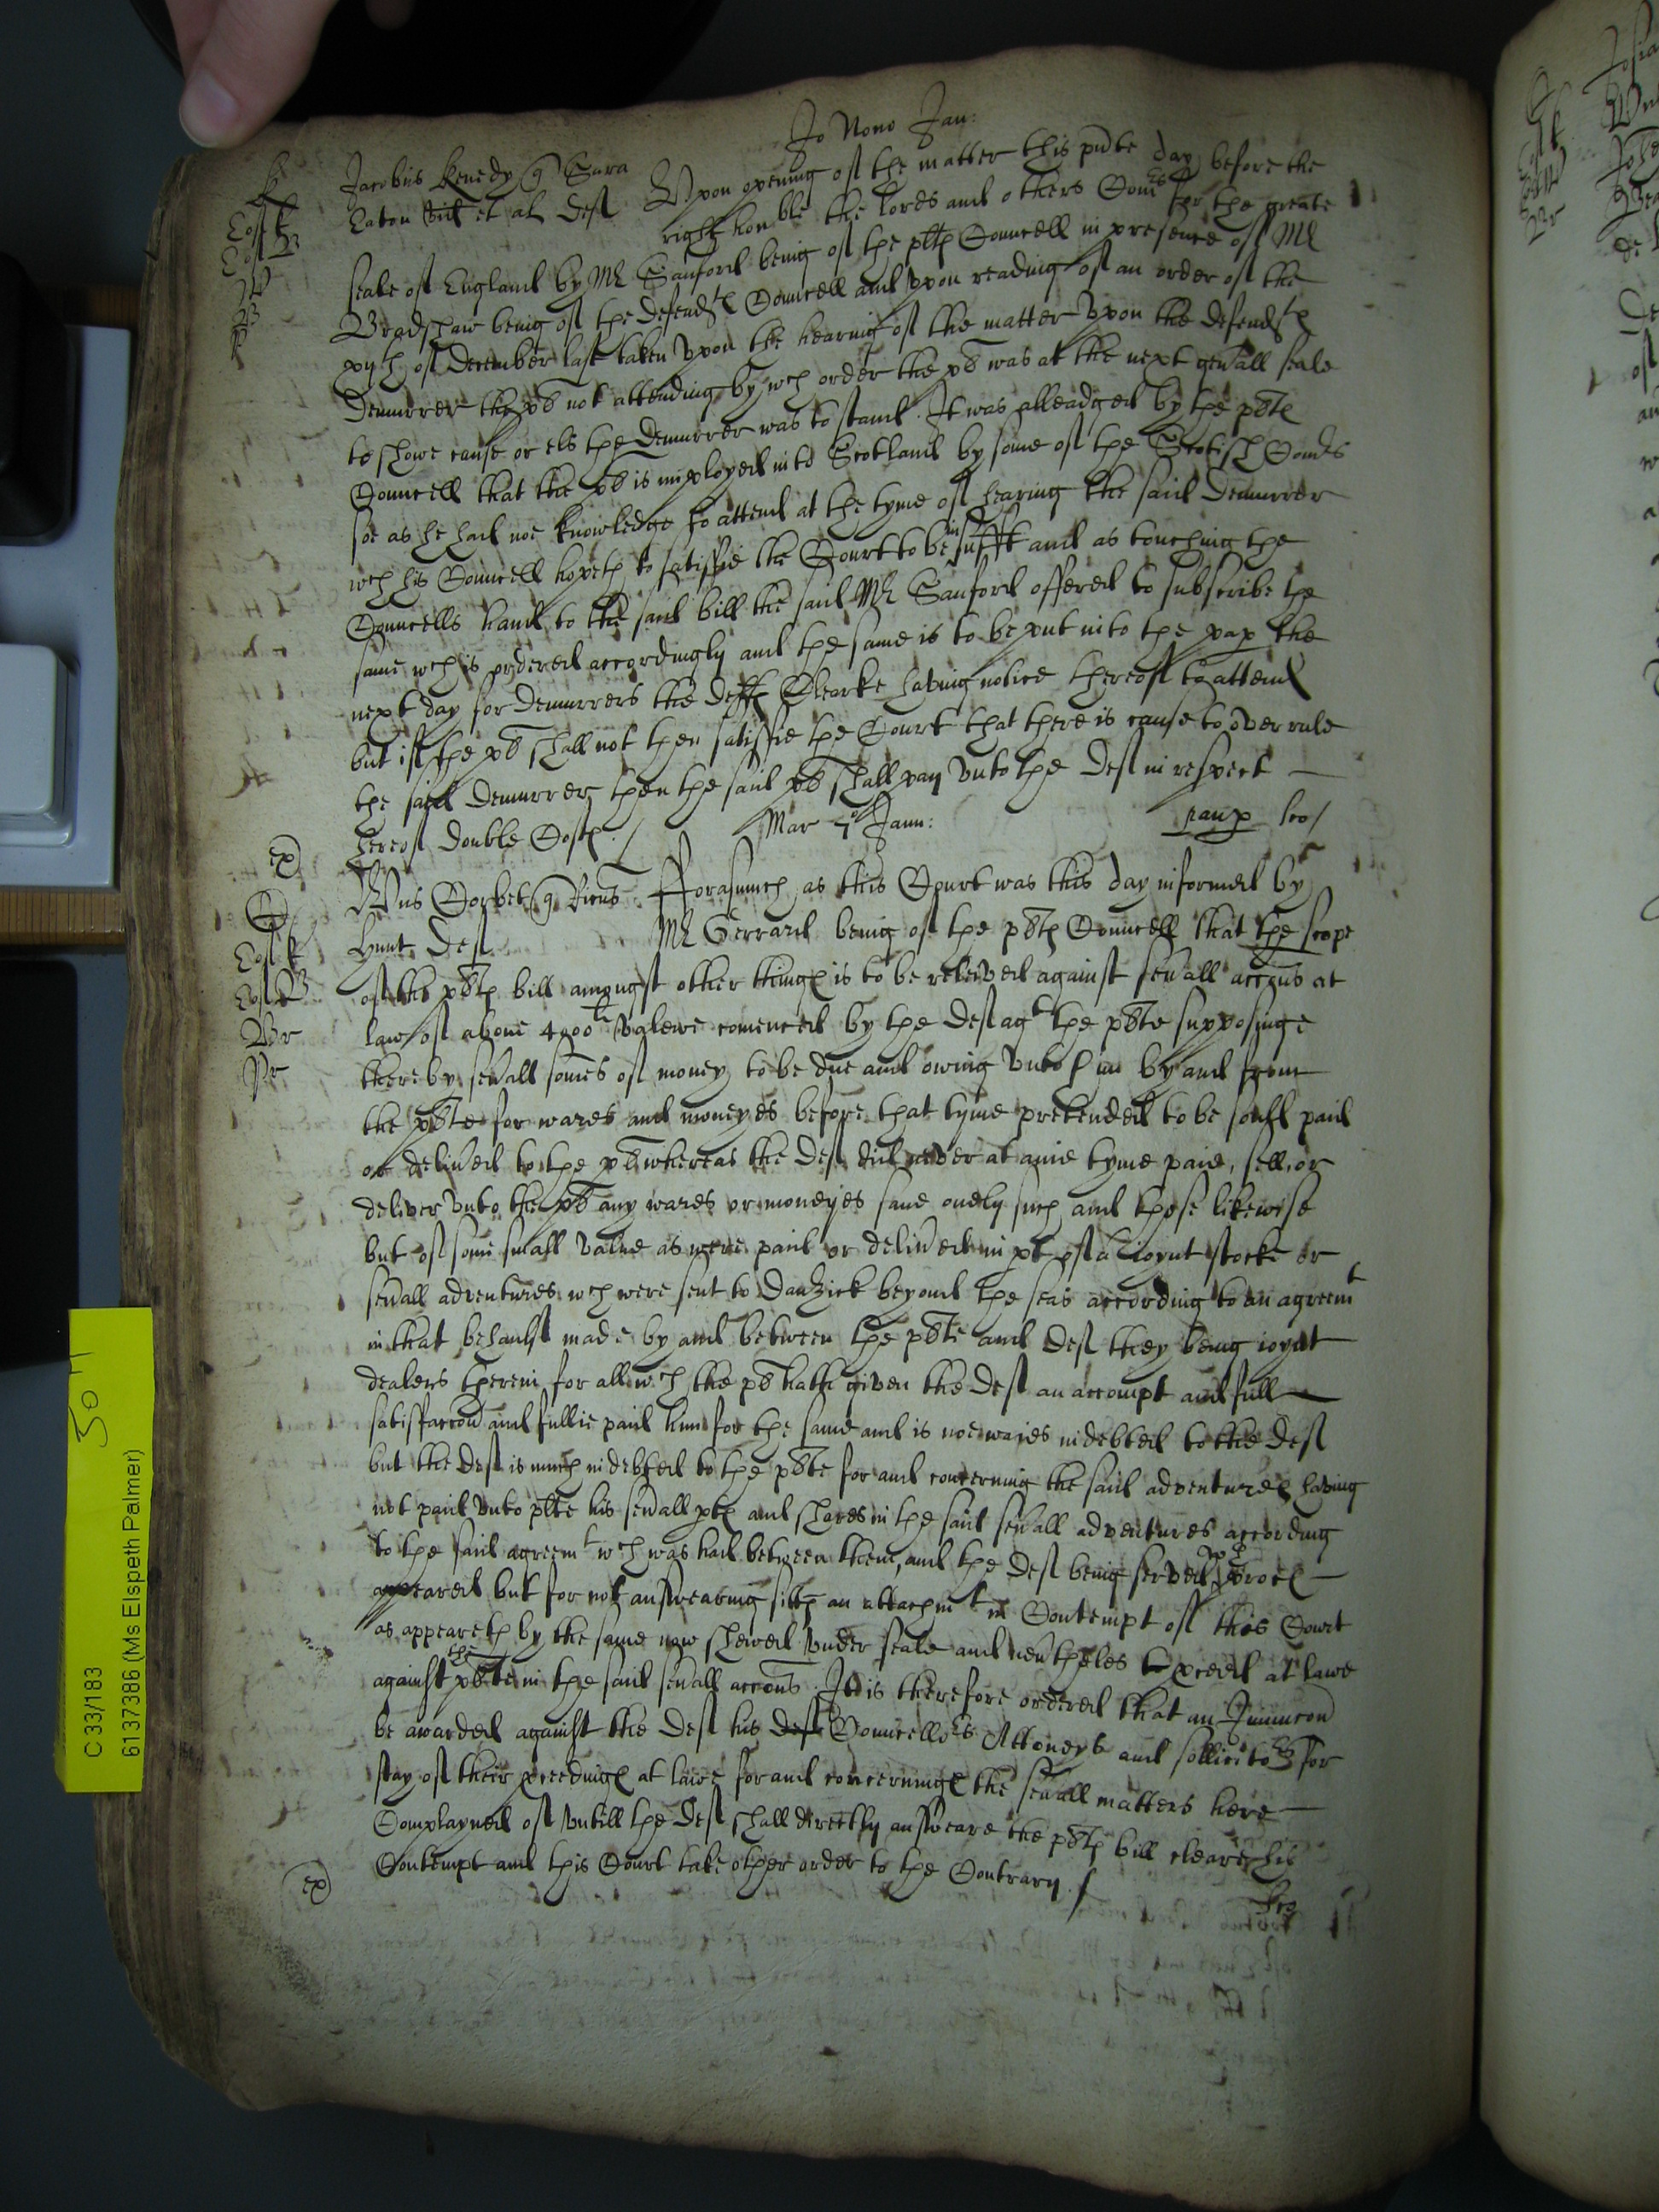 Jo Nono Jan:
Jacobus Kenedy q Sara
Eaton vid et al Deft
Upon opening of the matter this pnte day before the
right honble the lords and others Comrs for the greate
seale of England by Mr Sanford being of the plts Councell in presence of Mr
Bradshaw being of the defendts Councell and upon reading of an order of the
xvijth of December last taken upon the hearing of the matter upon the defendts
Demurrer the plt not attending by wch order the plt was at the next genrall seale
to showe cause or els the Demurrer was to stand. It was alleadged by the plts
Councell that the plt is imployed into Scotland by some of the Scotish Comrs
soe as he had noe knowledge to attend at the tyme of hearing the said Demurrer
wch his Councell hopeth to satisfie the Court to be insufft and as touching the
Councells hand to the said bill the said Mr Sanford offered to subscribe the
same wch is ordered accordingly and the same is to be put into the pap the
next day for Demurrers the defts Clearke having notice thereof to attend
but if the plt shall not then satisfie the Court that there is cause to over rule
the said Demurrer then the said plt shall pay unto the Deft in respect
hereof double Costs./
Mar 7o Jann:
Wus Corbet q Ricus
Hunt Deft
Forasmuch as this Court was this day informed by
Mr Gerrard being of the plts Councell that the scope
of the plts bill amongst other things is to be releived against sevrall accons at
law of above 4000li valewe comenced by the Deft agt the plte supposinge
thereby sevrall somes of money to be due and owing unto him by and from
the plte for wares and moneyes before that tyme pretended to be sould paid
or delived to the plt whereas the Deft did never at anie tyme paie, sell, or
deliver unto the plt any wares or moneyes save onely such and those likewise
but of some small value as were paid or delived in pt of a Joynt stocke or
sevrall adventures wch were sent to Danzick beyond the seas according to an agreemt
in that behaulf made by and between the plte and Deft they being ioynt
dealers therein for all wch the plt hath given the Deft an accompt and full
satisfaccon and fullie paid him for the same and is noe waies indebted to the Deft
but the Deft is much indebted to the plte for and concerning the said adventures having
not paid unto plte his sevrall pts and shares in the said sevrall adventures according
to the said agreemt wch was had between them, and the Deft being served wth proces
appeared but for not answearing sitts an attachmt in Contempt of this Court
as appeareth by the same now shewed under seale and nevrtheles to pceed at lawe
against the plte in the said sevrall accons. It is therefore ordered that an Iniuncon
be awarded against the Deft his Councellors Attorneys and sollicitors for
stay of their pceedings at lawe for and concerninge the sevrall matters here
Complayned of untill the Deft shall directly answeare the plts bill cleare his
Contempt and this Court take other order to the Contrary./
ex
ex
C 33/183
6137386 (Ms Elspeth Palmer)